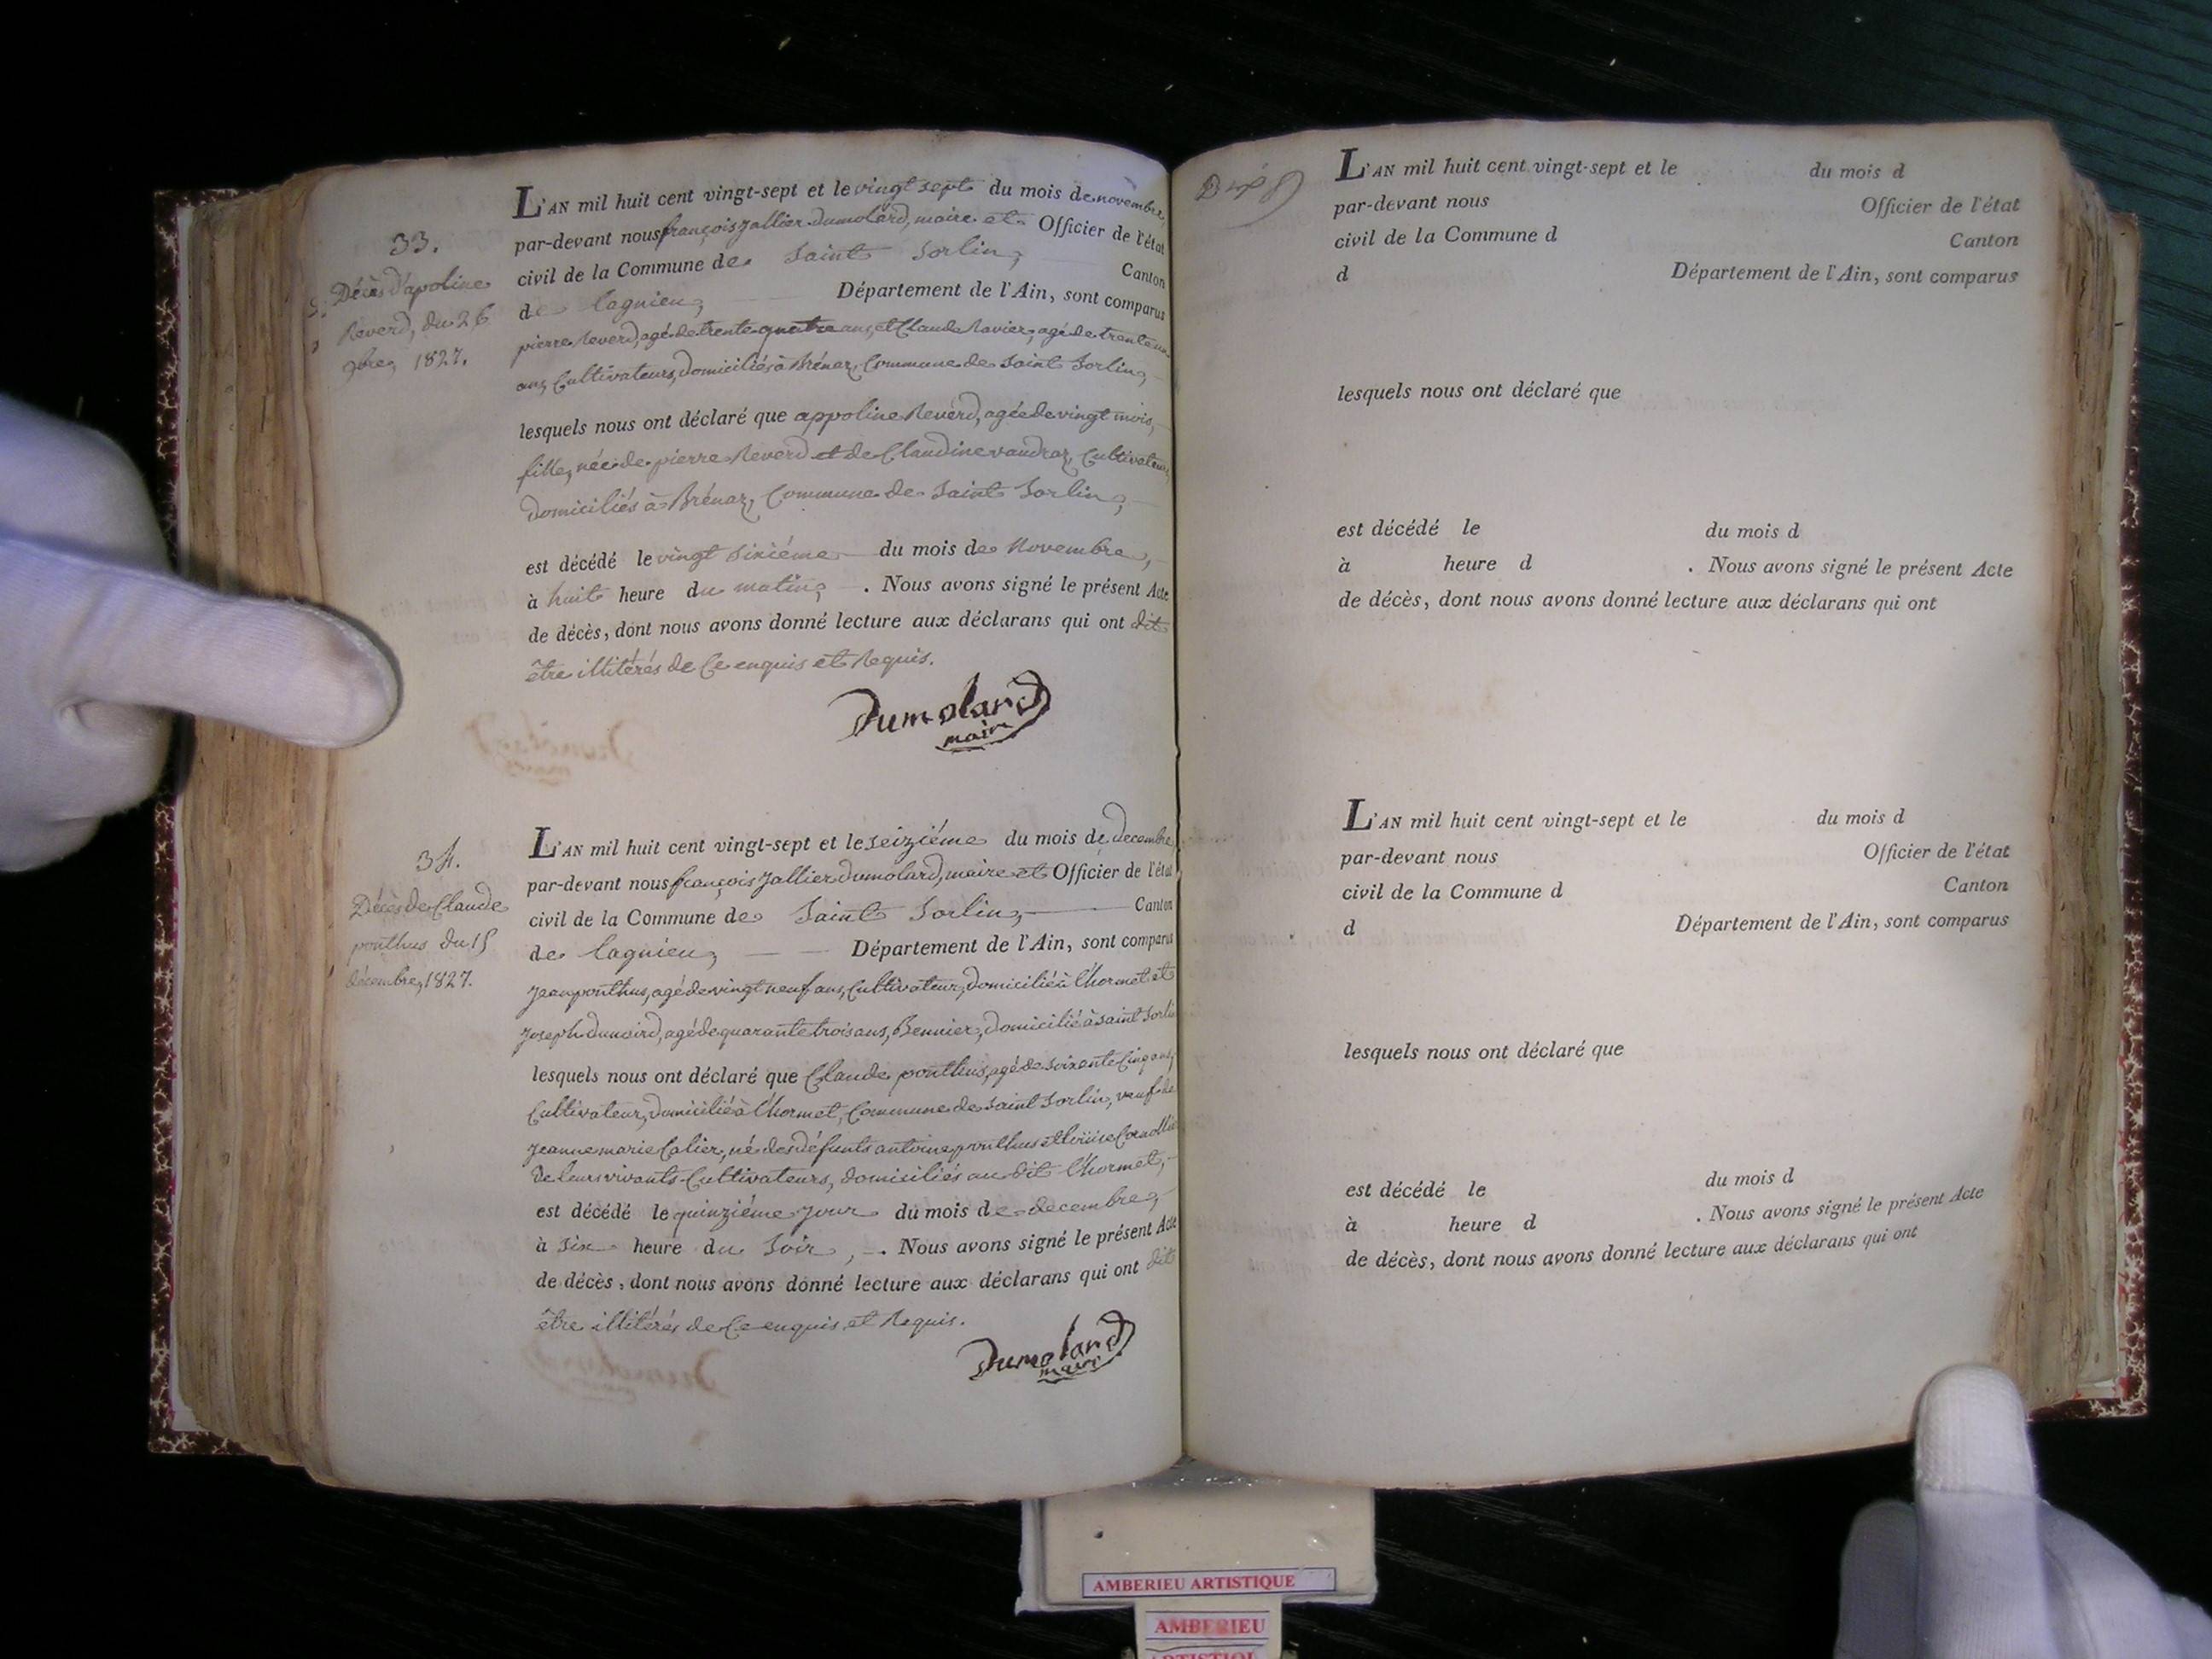 33.
Décès d'apoline
Reverd, du 26
9bre, 1827.
L'AN mil huit cent vingt-sept et le vingt sept du mois de novembre,
par-devant nous françois Jallier Dumolard, maire et Officier de l'état
civil de la Commune de Saint Sorlin, Canton
de lagnieu, Département de l'Ain, sont comparus
pierre Reverd, agé de trente quatre ans, et Claude Ravier, agé de trente
ans, Cultivateurs, domiciliés à Brénaz, Commune de Saint Sorlin,
lesquels nous ont déclaré que appoline Reverd, agée de vingt mois,
fille, née de pierre Reverd et de Claudine vaudraz, Cultivateurs,
domiciliés à Brénaz, Commune de Saint Sorlin,
est décédé le vingt sixiéme du mois de Novembre,
à huit heure du matin, . Nous avons signé le présent Acte
de décès, dont nous avons donné lecture aux déclarans qui ont dit
être illitérés de Ce enquis et Requis.
Dumolard
maire
34.
Décès de Claude
ponthus du 15
décembre, 1827.
L'AN mil huit cent vingt-sept et le seiziéme du mois de decembre
par-devant nous françois Jallier Dumolard, maire et Officier de l'état
civil de la Commune de Saint Sorlin, Canton
de lagnieu, Département de l'Ain, sont comparus
Jean ponthus, agé de vingt neuf ans, Cultivateur, domicilié à l'hormet et
Joseph dunoird, agé de quarante trois ans, Bennier, domicilié à Saint Sorlin
lesquels nous ont déclaré que Claude ponthus, agé de soixante Cinq ans,
Cultivateur, domicilié à l'hormet, Commune de Saint Sorlin, veuf de
Jeanne marie Calier, né des défunts antoine ponthus et loüise
de leurs vivants Cultivateurs, domiciliés au dit l'hormet,
est décédé le quinziéme jour du mois de decembre,
à six heure du Soir, . Nous avons signé le présent Acte
de décès, dont nous avons donné lecture aux déclarans qui ont dit
être illitérés de Ce enquis et Requis.
Dumolard
maire
L'AN mil huit cent vingt-sept et le du mois d
par-devant nous Officier de l'état
civil de la Commune d Canton
d Département de l'Ain, sont comparus
lesquels nous ont déclaré que
est décédé le du mois d
à heure d . Nous avons signé le présent Acte
de décès, dont nous avons donné lecture aux déclarans qui ont
L'AN mil huit cent vingt-sept et le du mois d
par-devant nous Officier de l'état
civil de la Commune d Canton
d Département de l'Ain, sont comparus
lesquels nous ont déclaré que
est décédé le du mois d
à heure d . Nous avons signé le présent Acte
de décès, dont nous avons donné lecture aux déclarans qui ont
AMBERIEU ARTISTIQUE
AMBERIEU
ARTISTIQUE